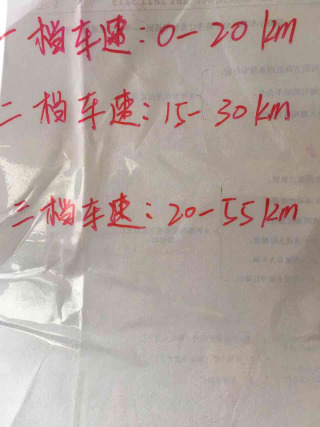 一档车速:0-20km
二档车速:15-30km
三档车速:20-55km